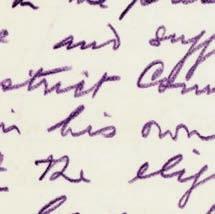 in the
and suff
strict Com
in his own
the elig